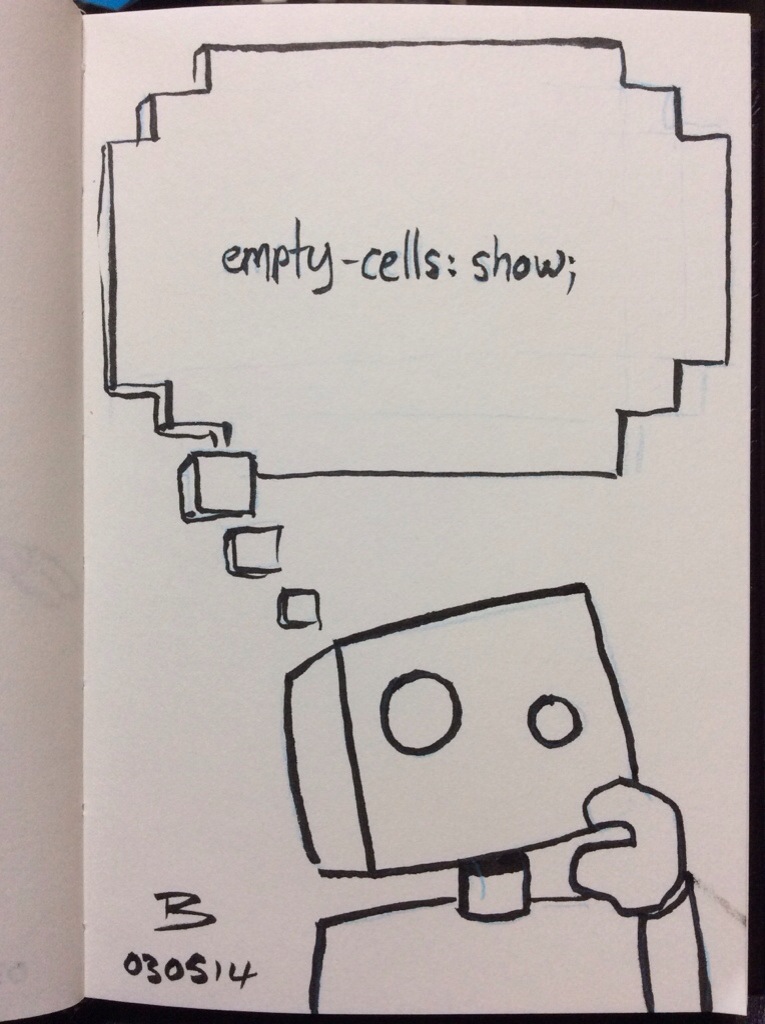 empty-cells: show;
B
030514